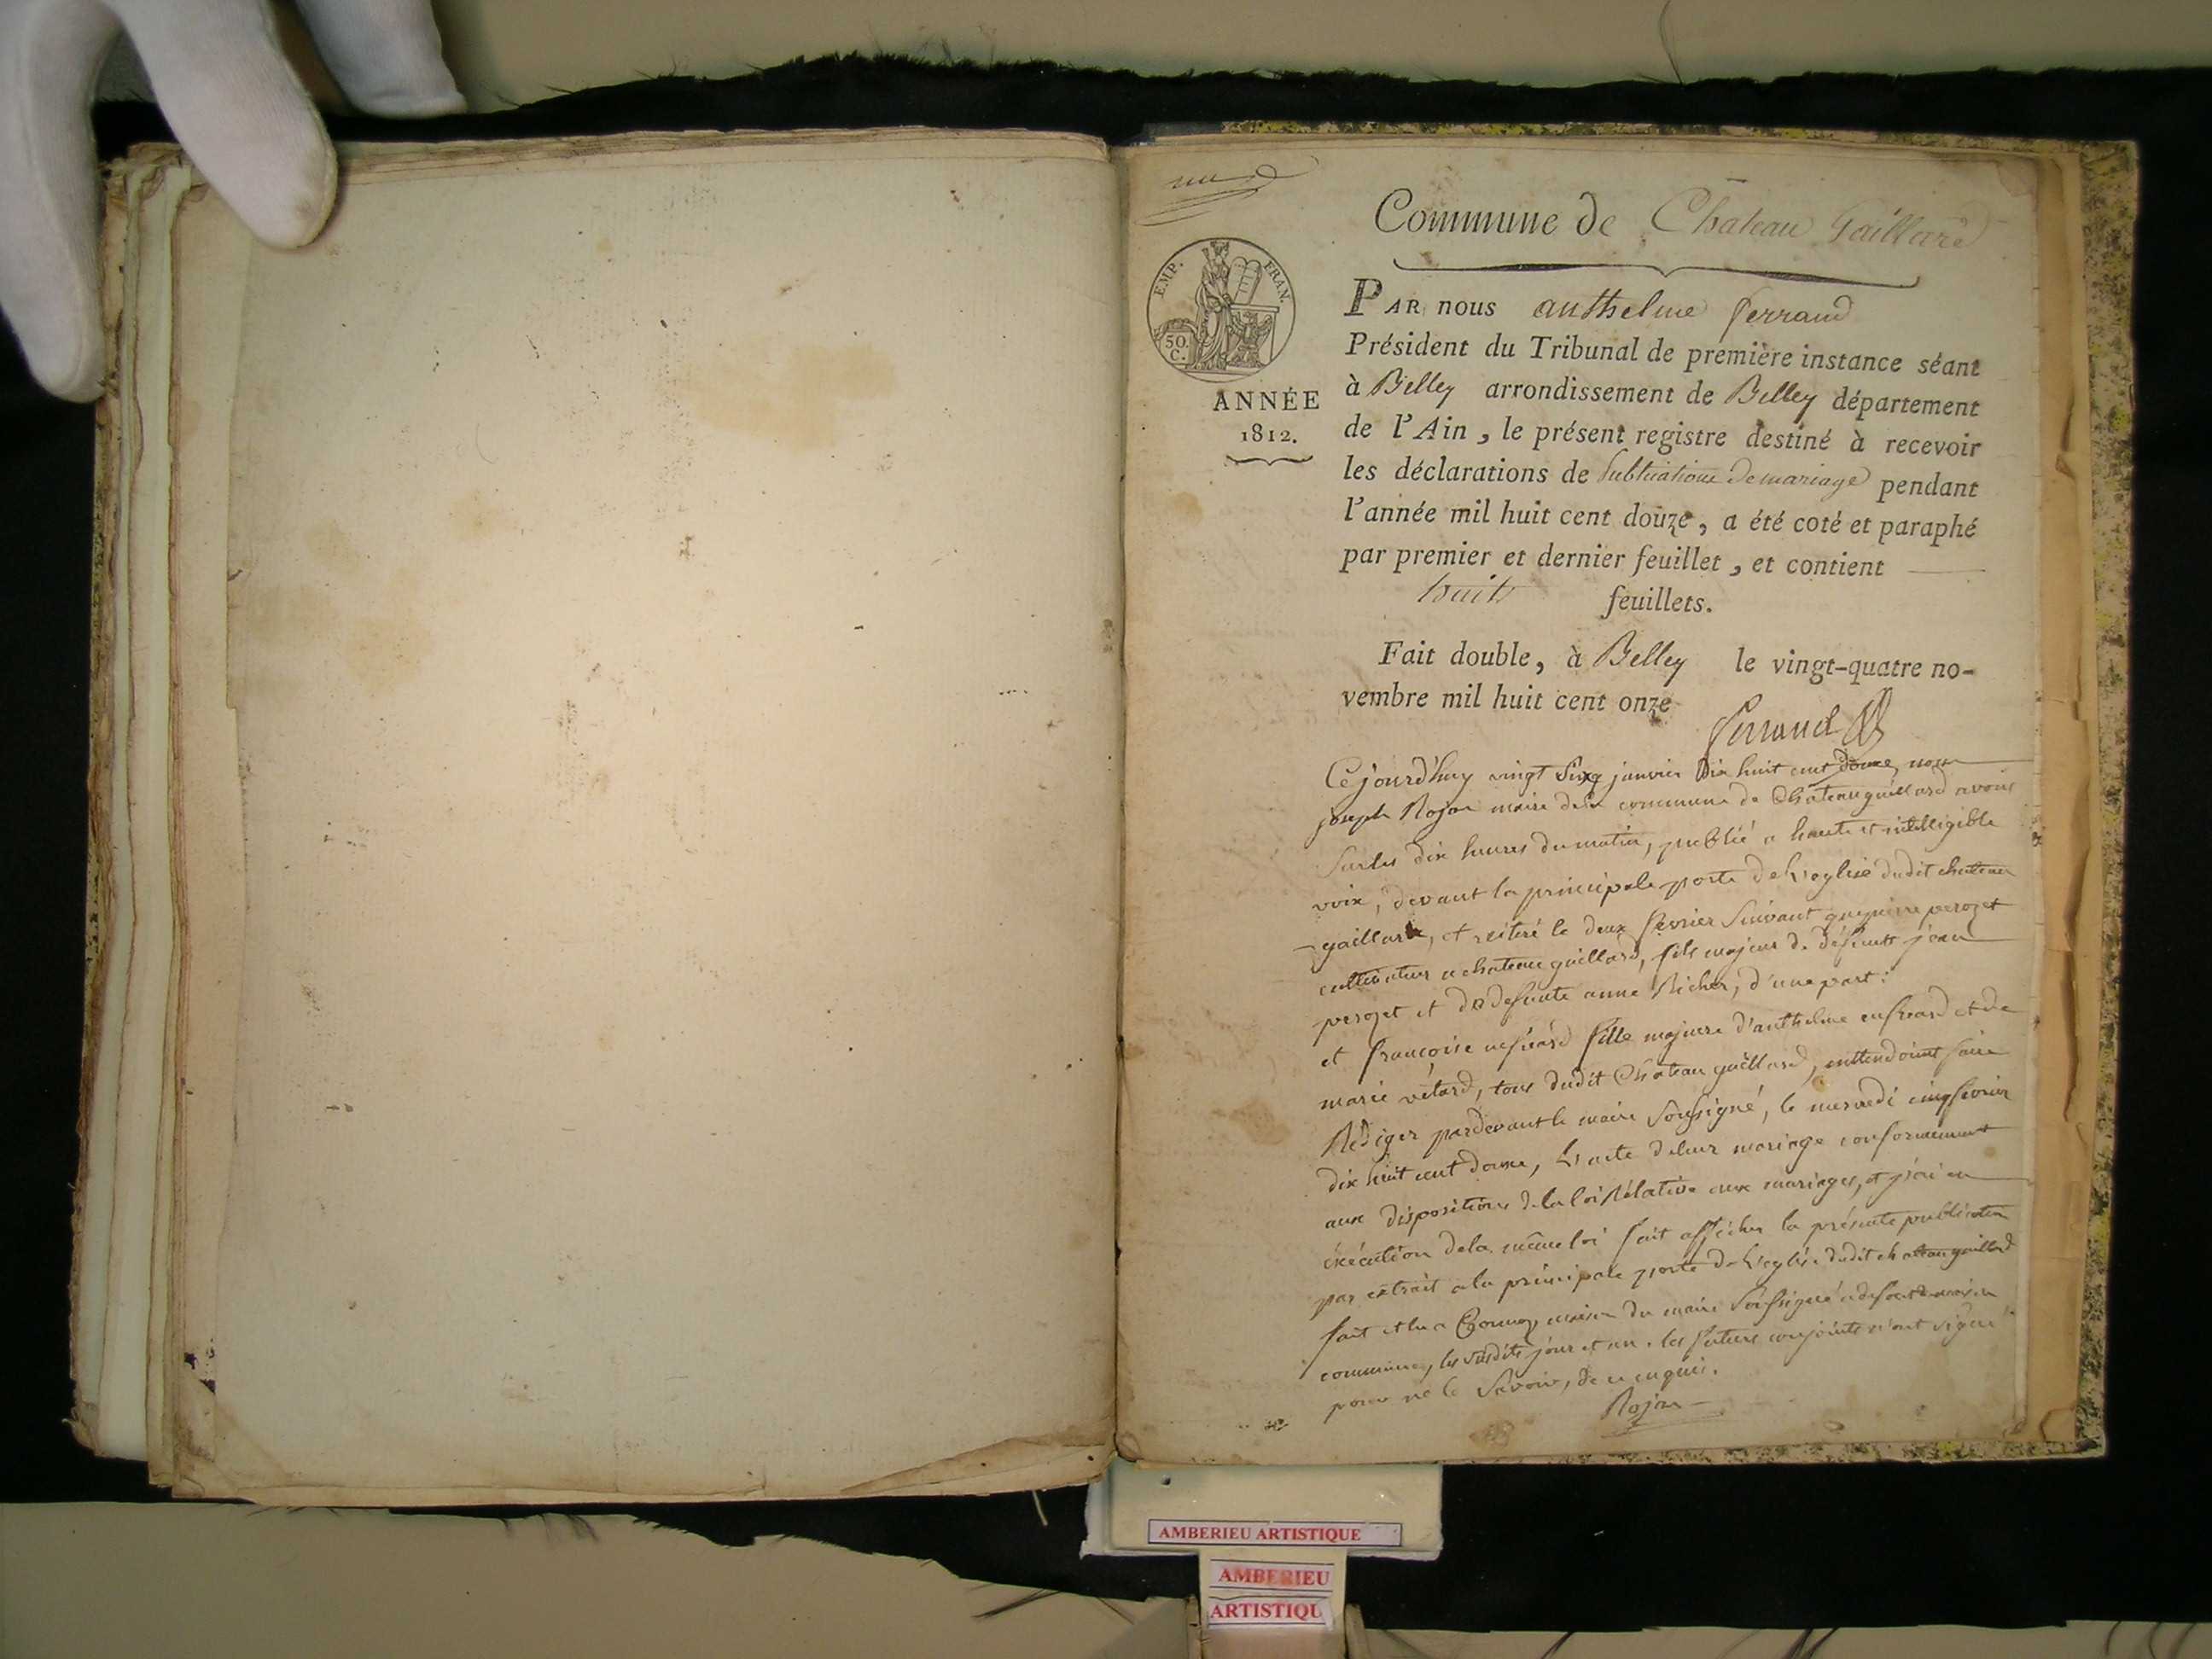 Commune de Chateau Gaillard
EMP. FRAN.
50.
C.
ANNÉE
1812.
PAR nous anthelme ferrand
Président du Tribunal de première instance séant
à Belley arrondissement de Belley département
de l'Ain, le présent registre destiné à recevoir
les déclarations de publications de mariage pendant
l'année mil huit cent douze, a été coté et paraphé
par premier et dernier feuillet, et contient
huit feuillets.
Fait double, à Belley le vingt-quatre no-
vembre mil huit cent onze
ferrand
Cejourd'huy vingt janvier dix huit cent douze, nous
joseph Rojon maire de la commune de Chateaugaillard avons
sur les dix heures du matin, publié a haute et intelligible
voix, devant la principale porte de l'eglise dudit chateau
gaillard, et reiteré le deux fevrier suivant que pierre perozet
cultivateur a chateau gaillard, fils majeur de defunt jean
perozet et de defunte anne Richer, d'une part:
et françoise fille majeure d'anthelme et de
marie vétard, tous dudit Chateau gaillard, entendoint faire
Rédiger pardevant le maire soussigné, le mercredi cinq fevrier
dix huit cent douze, l'acte de leur mariage conformement
aux dispositions de la loi Rélative aux mariages, et j'ai en
éxécution de la même loi fait afficher la présente publication
par extrait a la principale porte de l'eglise dudit chateaugaillard
fait et lu a maison du maire soussigné a defaut de maison
commune, les susdits jour et an. les futurs conjoints n'ont signé
pour ne le savoir, de ce enquis.
Rojon
AMBERIEU ARTISTIQUE
AMBERIEU
ARTISTIQU